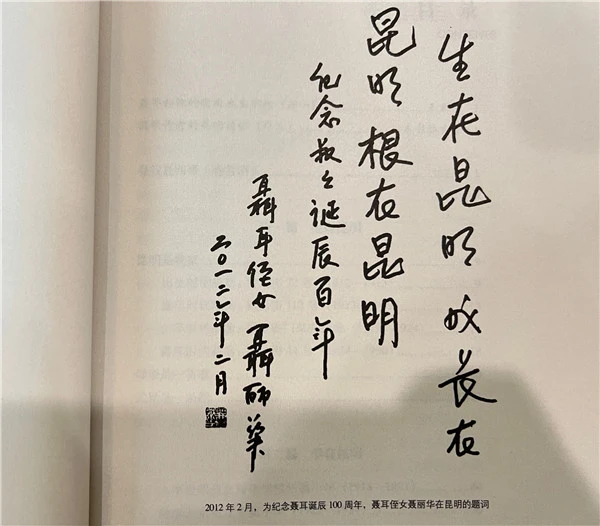 生在昆明成长在
昆明根在昆明
纪念叔々诞辰百年
聶耳侄女聶丽華
二〇一二年二月
2012 年 2 月，为纪念聂耳诞辰 100 周年，聂耳侄女聂丽华在昆明的题词